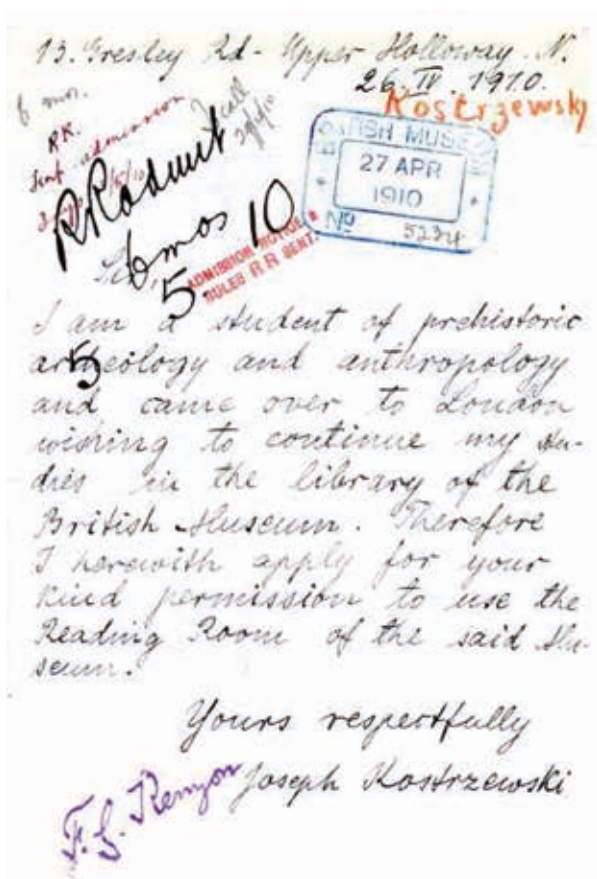 13. Gresley Rd - Upper Holloway. N.
26. IV. 1910.
Kostrzewsky
6 mos.
RK.
Sent admission
I call
BRITISH MUSEUM
27 APR
1910
No 5234
RR admit
6 mos
5 10
ADMISSION NOTICE &
RULES R R SENT.
Sir,
5
I am a student of prehistoric
archeology and anthropology
and came over to London
wishing to continue my stu-
dies in the library of the
British Museum. Therefore
I herewith apply for your
kind permission to use the
Reading Room of the said Mu-
seum.
Yours respectfully
Joseph Kostrzewski
F. G. Kenyon